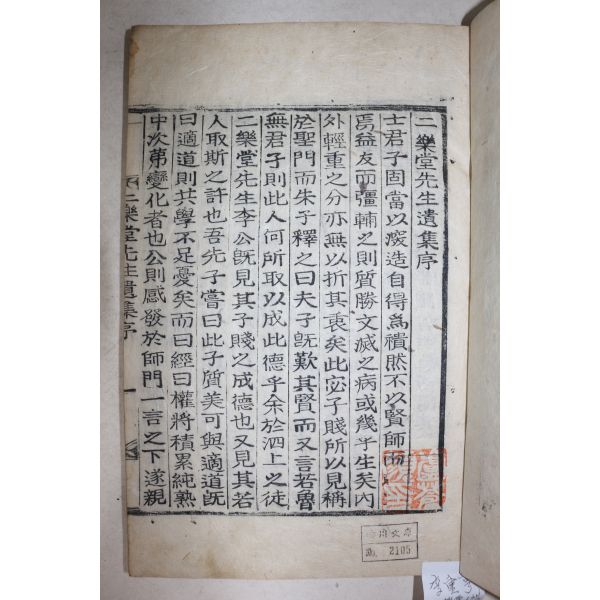 二樂堂先生遺集序
士君子固當以深造自得爲積然不以賢師而
焉益友而彊輔之則質勝文滅之病或幾乎生矣內
外輕重之分亦無以折其衷矣此宓子賤所以見稱
於聖門而朱子釋之曰夫子旣歎其賢而又言若魯
無君子則此人何所取以成此德乎余於泗上之徒
二樂堂先生李公旣見其子賤之成德也又見其若
人取斯之許也吾先子嘗曰此子質美可與適道旣
曰適道則共學不足憂矣而曰經曰權將積累純熟
中次第變化者也公則感發於師門一言之下遂親
二樂堂先生遺集序
一
2105